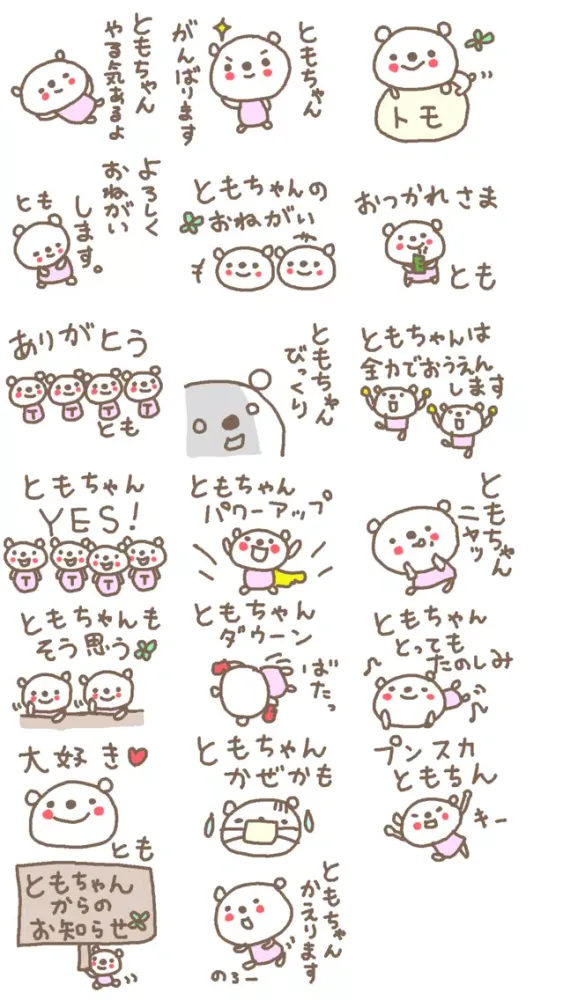 ともちゃん
やる気あるよ
ともちゃん
がんばります
トモ
よろしく
おねがい
します。
とも
ともちゃんの
おねがい
おつかれさま
とも
ありがとう
T T T T
とも
ともちゃん
びっくり
ともちゃんは
全力でおうえん
します
ともちゃん
YES!
T T T T
ともちゃん
パワーアップ
ともちゃん
ニヤッ
ともちゃんも
そう思う
ともちゃん
ダウーン
ばたっ
ともちゃん
とっても
たのしみ
大好き
とも
ともちゃん
かぜかも
プンスカ
ともちん
キー
ともちゃん
からの
お知らせ
ともちゃん
かえります
のろー